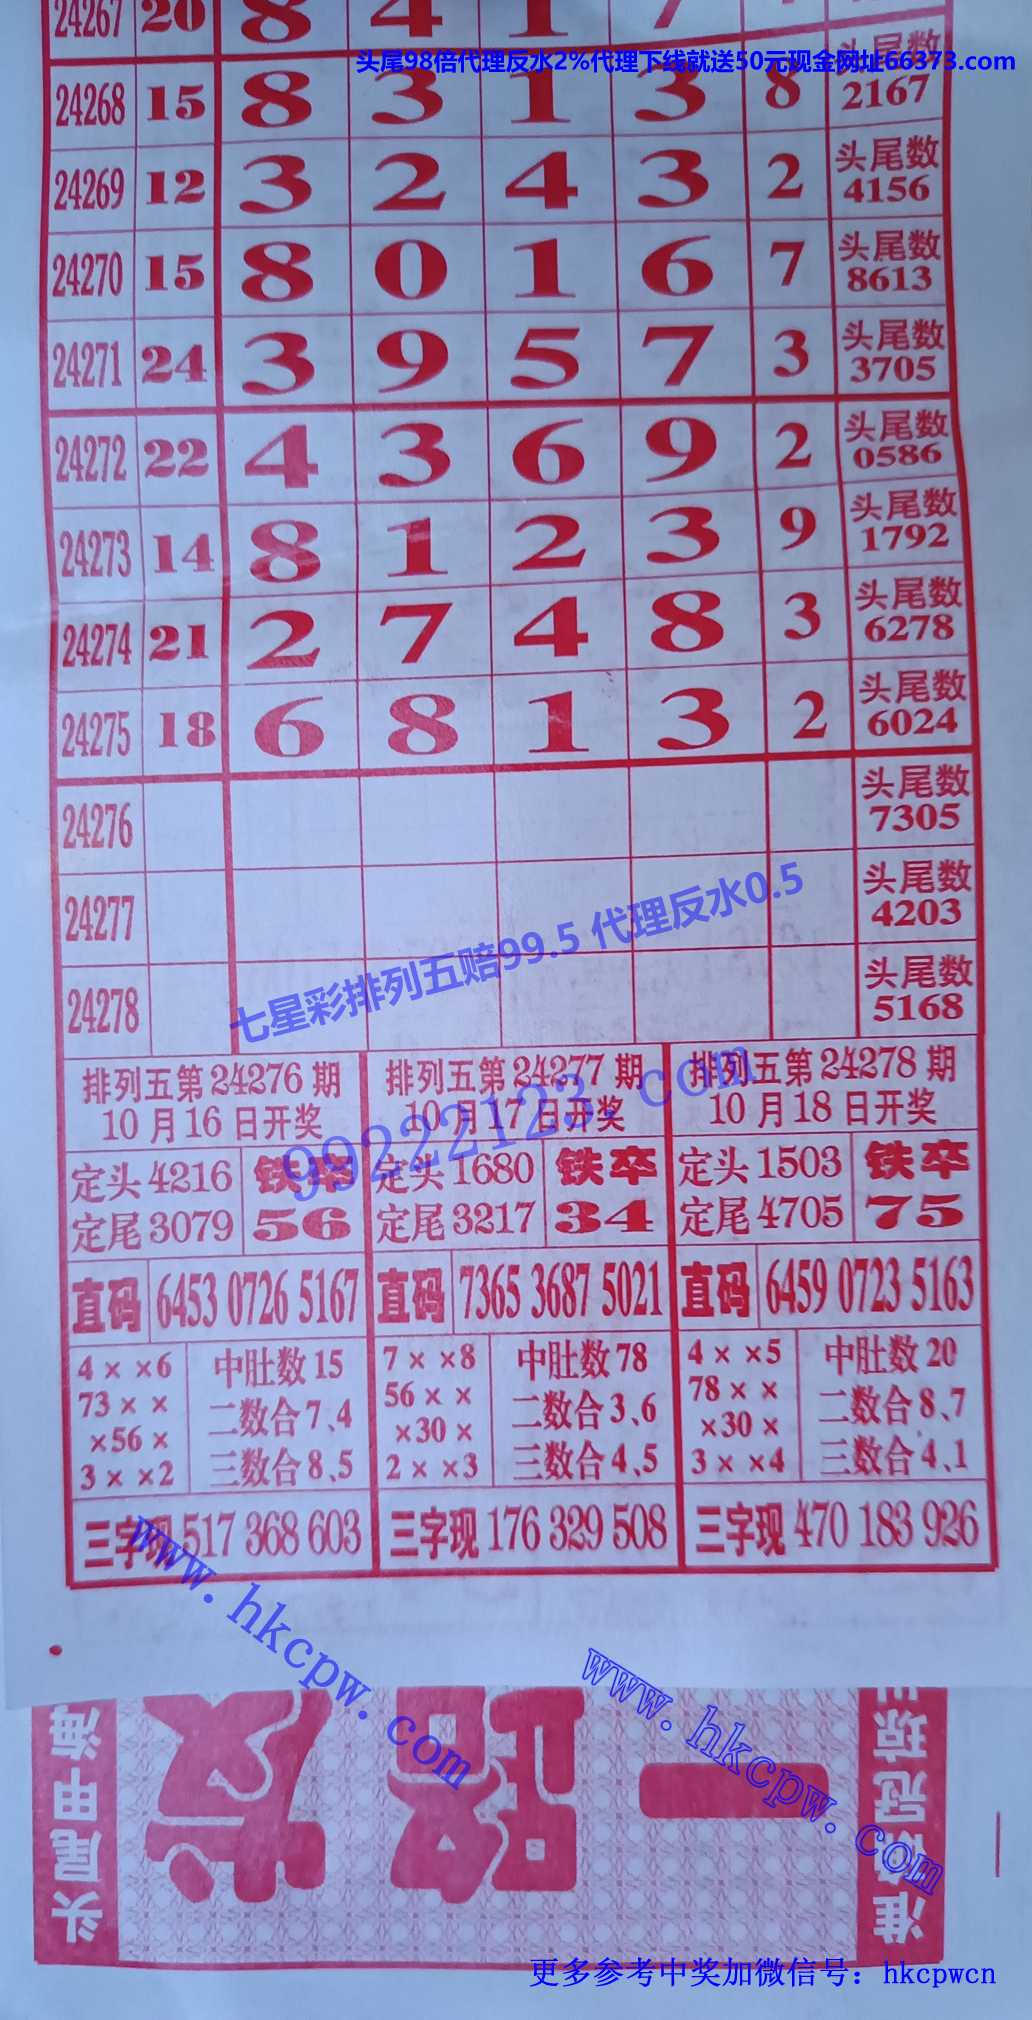 24267 20 8 4 1 7
头尾98倍代理反水2%代理下线就送50元现金网址66373.com
24268 15 8 3 1 3 8 头尾数 2167
24269 12 3 2 4 3 2 头尾数 4156
24270 15 8 0 1 6 7 头尾数 8613
24271 24 3 9 5 7 3 头尾数 3705
24272 22 4 3 6 9 2 头尾数 0586
24273 14 8 1 2 3 9 头尾数 1792
24274 21 2 7 4 8 3 头尾数 6278
24275 18 6 8 1 3 2 头尾数 6024
24276 头尾数 7305
24277 头尾数 4203
24278 头尾数 5168
七星彩排列五赔99.5 代理反水0.5
99222123.com
排列五第24276期
10月16日开奖
定头4216 铁卒
定尾3079 56
直码 6453 0726 5167
4××6 中肚数15
73×× 二数合7、4
×56×
3××2 三数合8、5
三字现 517 368 603
排列五第24277期
10月17日开奖
定头1680 铁卒
定尾3217 34
直码 7365 3687 5021
7××8 中肚数78
56×× 二数合3、6
×30×
2××3 三数合4、5
三字现 176 329 508
排列五第24278期
10月18日开奖
定头1503 铁卒
定尾4705 75
直码 6459 0723 5163
4××5 中肚数20
78×× 二数合8、7
×30×
3××4 三数合4、1
三字现 470 183 926
www.hkcpw.com
www.hkcpw.com
头尾甲海
一路发
准冠琼
更多参考中奖加微信号：hkcpwcn